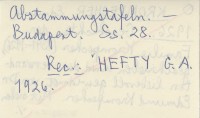 Abstammungstafeln. —
Budapest. Ss. 28.
Rec.: HEFTY G. A.
1926.